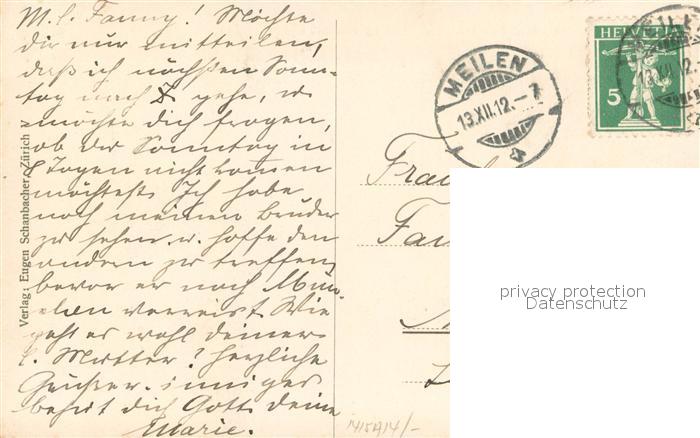 M. l. Fanny! Möchte
dir nur mitteilen,
daß ich nächsten Sonn-
tag nach Z gehe, u.
möchte dich fragen,
ob du Sonntag in
8 Tagen nicht kommen
möchtest. Ich habe
noch meinen Bruder
zu sehen u. hoffe den
andern zu treffen,
bevor er nach Mün-
verreist. Wie
geht es wohl deiner
l. Mutter? Herzliche
Grüsse. inniges
behüt dich Gott deine
Marie.
Verlag: Eugen Schanbacher, Zürich V
MEILEN
13.XII.12.-7
HELVETIA
5
13.XII.12.-
privacy protection
Datenschutz